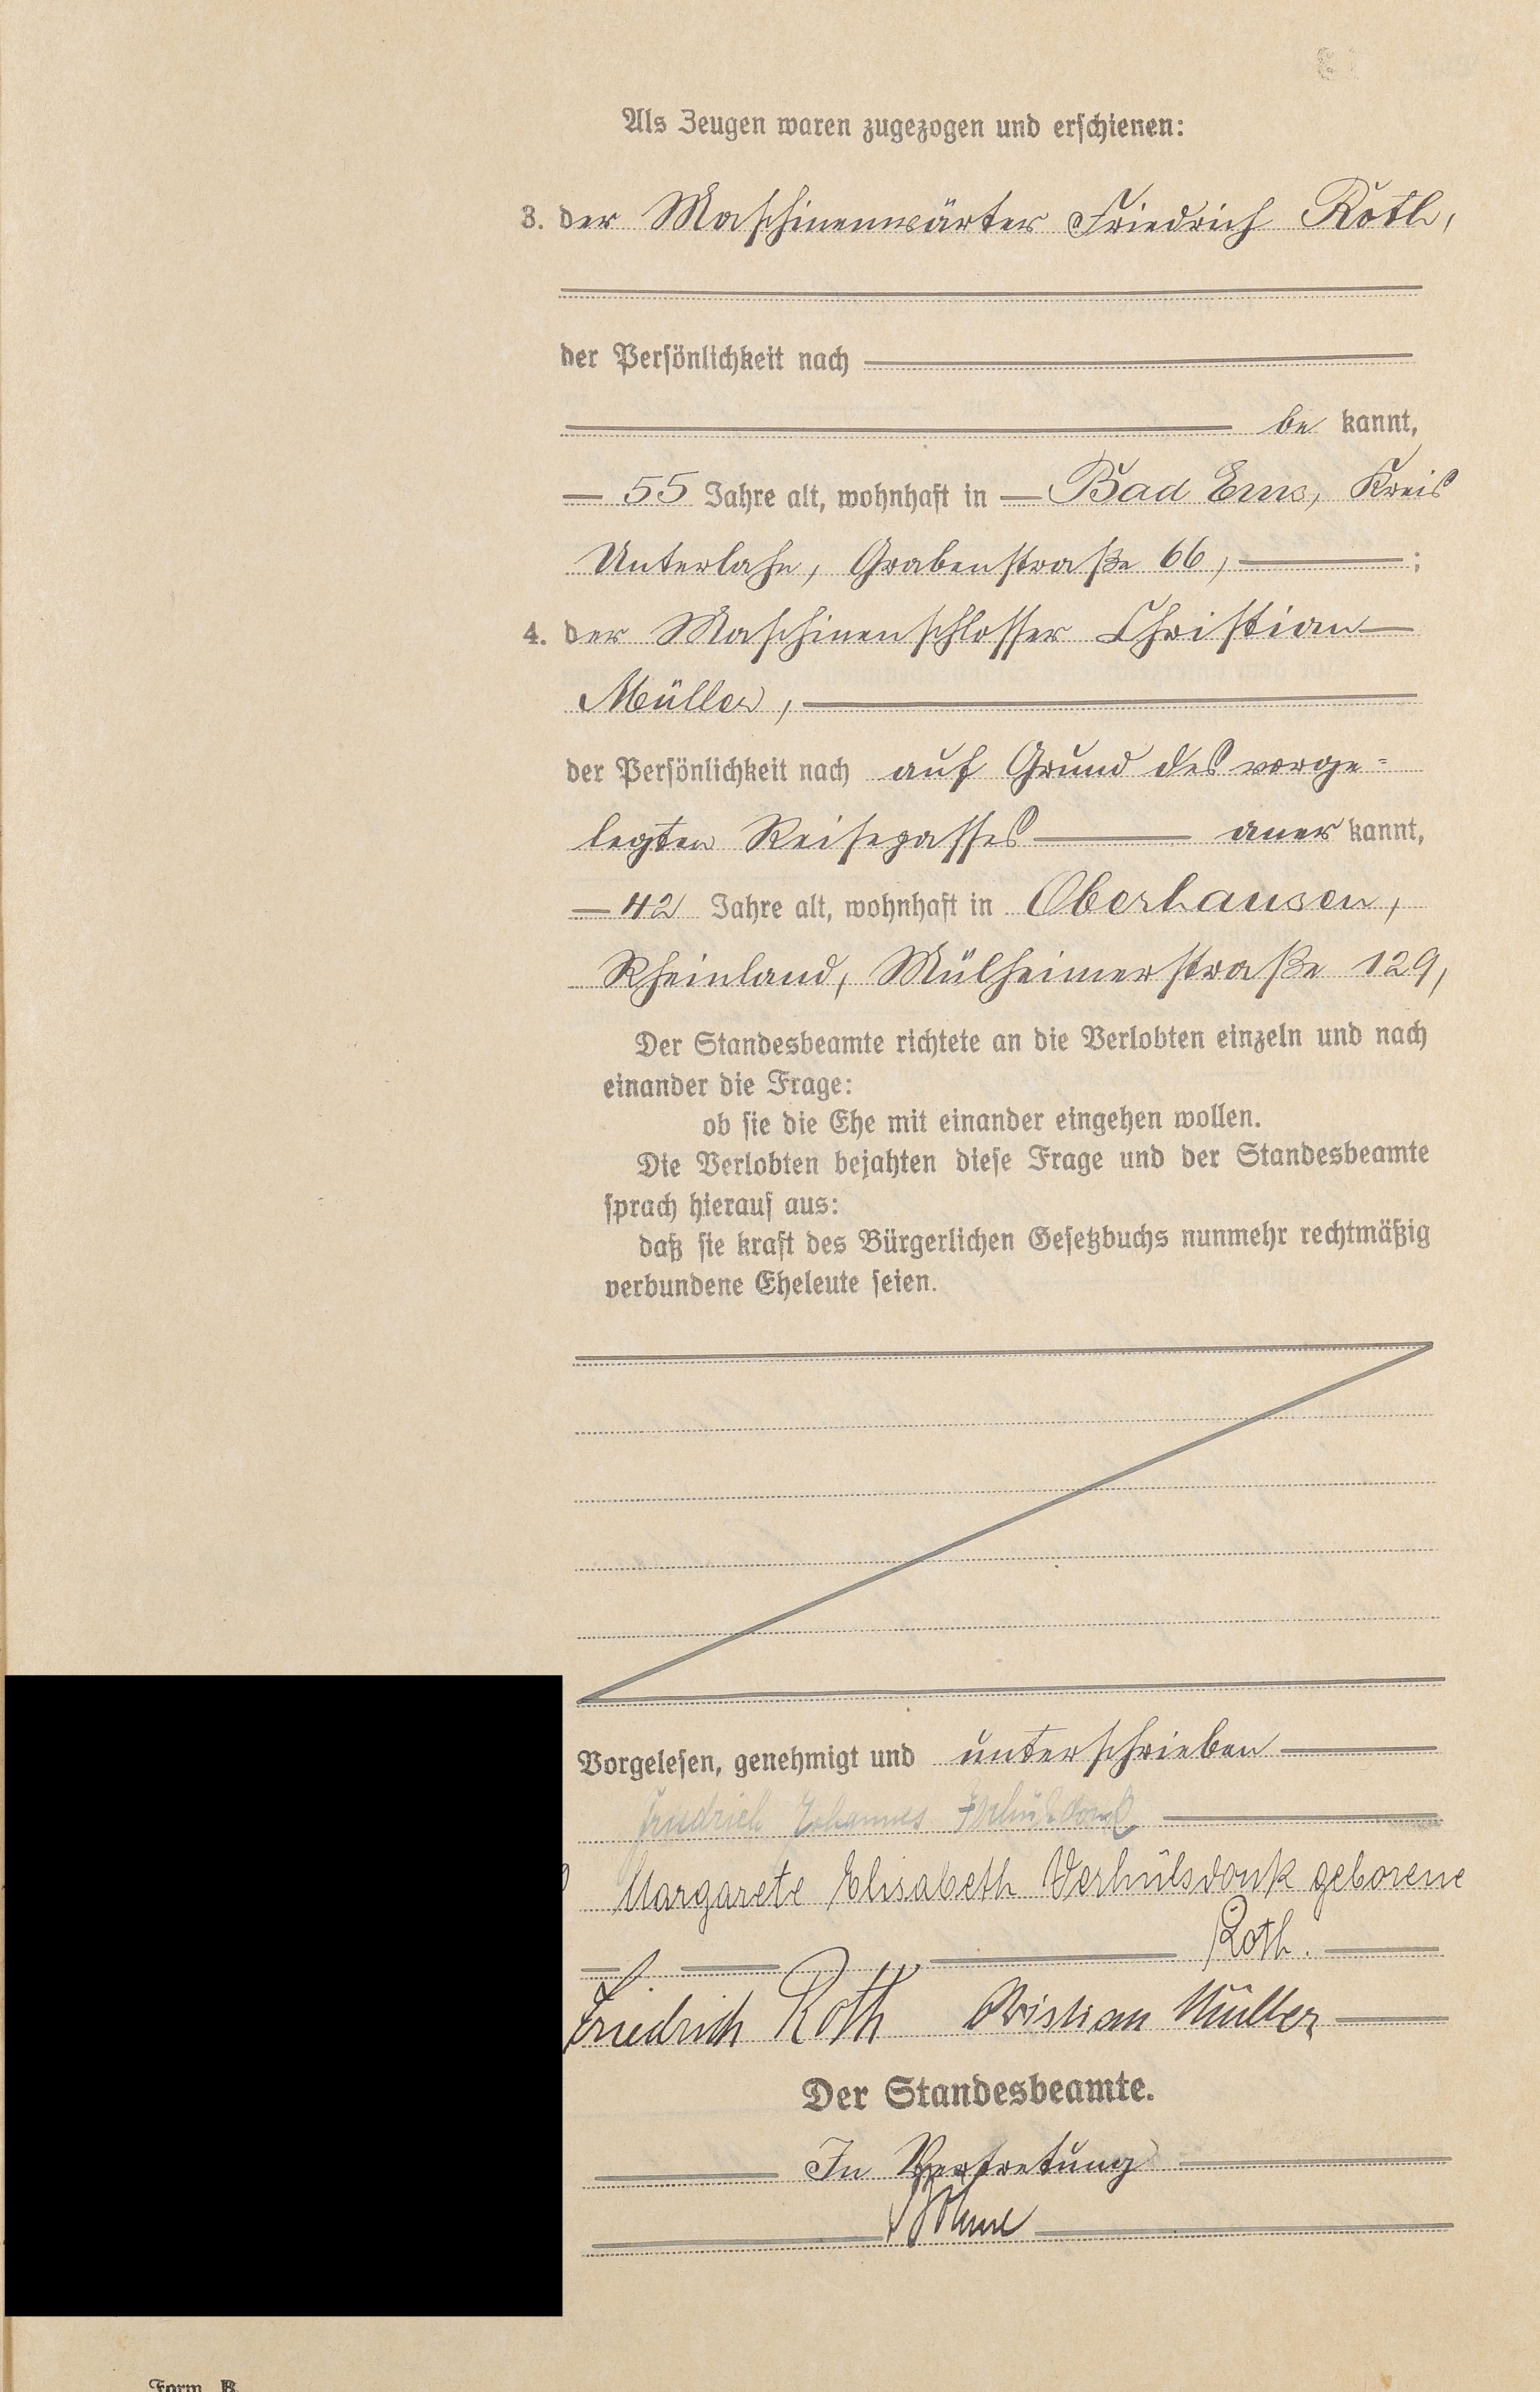 Als Zeugen waren zugezogen und erschienen:
3. der Maschinenwärter Friedrich Roth,
der Persönlichkeit nach
be kannt,
55 Jahre alt, wohnhaft in Bad Ems, Kreis
Unterlahn, Grabenstraße 66, ;
4. der Maschinenschlosser Christian
Müller,
der Persönlichkeit nach auf Grund des vorge=
legten Reisepasses aner kannt,
42 Jahre alt, wohnhaft in Oberhausen,
Rheinland, Mülheimerstraße 129,
Der Standesbeamte richtete an die Verlobten einzeln und nach
einander die Frage:
ob sie die Ehe mit einander eingehen wollen.
Die Verlobten bejahten diese Frage und der Standesbeamte
sprach hierauf aus:
daß sie kraft des Bürgerlichen Gesetzbuchs nunmehr rechtmäßig
verbundene Eheleute seien.
Vorgelesen, genehmigt und unterschrieben
Friedrich Johannes Verhülsdonk
Margarete Elisabeth Verhülsdonk geborene
Roth.
Friedrich Roth Christian Müller
Der Standesbeamte.
In Vertretung
Form. B.